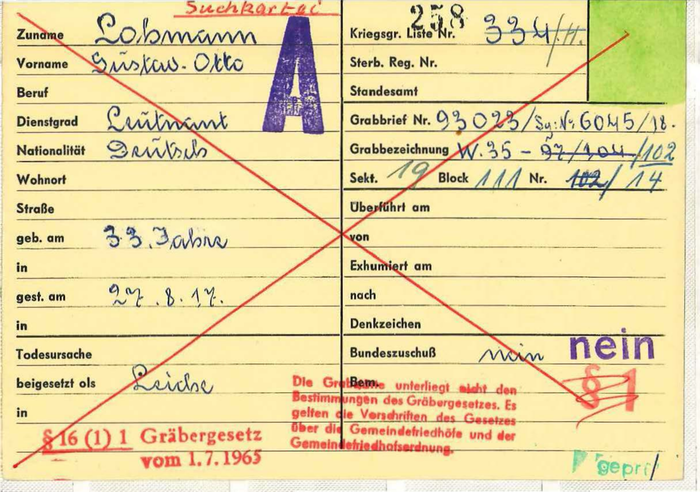 Suchkartei
Zuname Lohmann
Vorname Gustav-Otto
Beruf
Dienstgrad Leutnant
Nationalität Deutsch
Wohnort
Straße
geb. am 33 Jahre
in
gest. am 27.8.17.
in
Todesursache
beigesetzt als Leiche
in
§ 16 (1) 1 Gräbergesetz
vom 1.7.1965
A
258
Kriegsgr. Liste Nr. 334/H.
Sterb. Reg. Nr.
Standesamt
Grabbrief Nr. 93023/Sg:N: 6045/18.
Grabbezeichnung W.35 - 97/104/102
Sekt. 19 Block 111 Nr. 102/14
Überführt am
von
Exhumiert am
nach
Denkzeichen
Bundeszuschuß nein nein
Bem. § 1
Die Grabstätte unterliegt nicht den
Bestimmungen des Gräbergesetzes. Es
gelten die Vorschriften des Gesetzes
über die Gemeindefriedhöfe und der
Gemeindefriedhofsordnung.
gepr